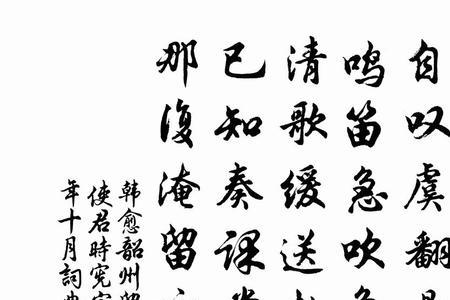 自叹虞翻
鸣笛急吹
清歌缓送
已知奏课
那復淹留
韩愈韶州留
使君時宪宗
年十月詞典